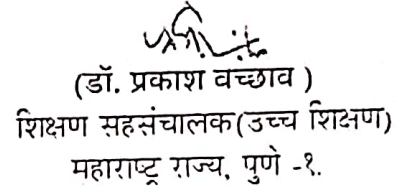 (डॉ. प्रकाश वच्छाव )
शिक्षण सहसंचालक(उच्च शिक्षण)
महाराष्ट्र राज्य, पुणे -१.